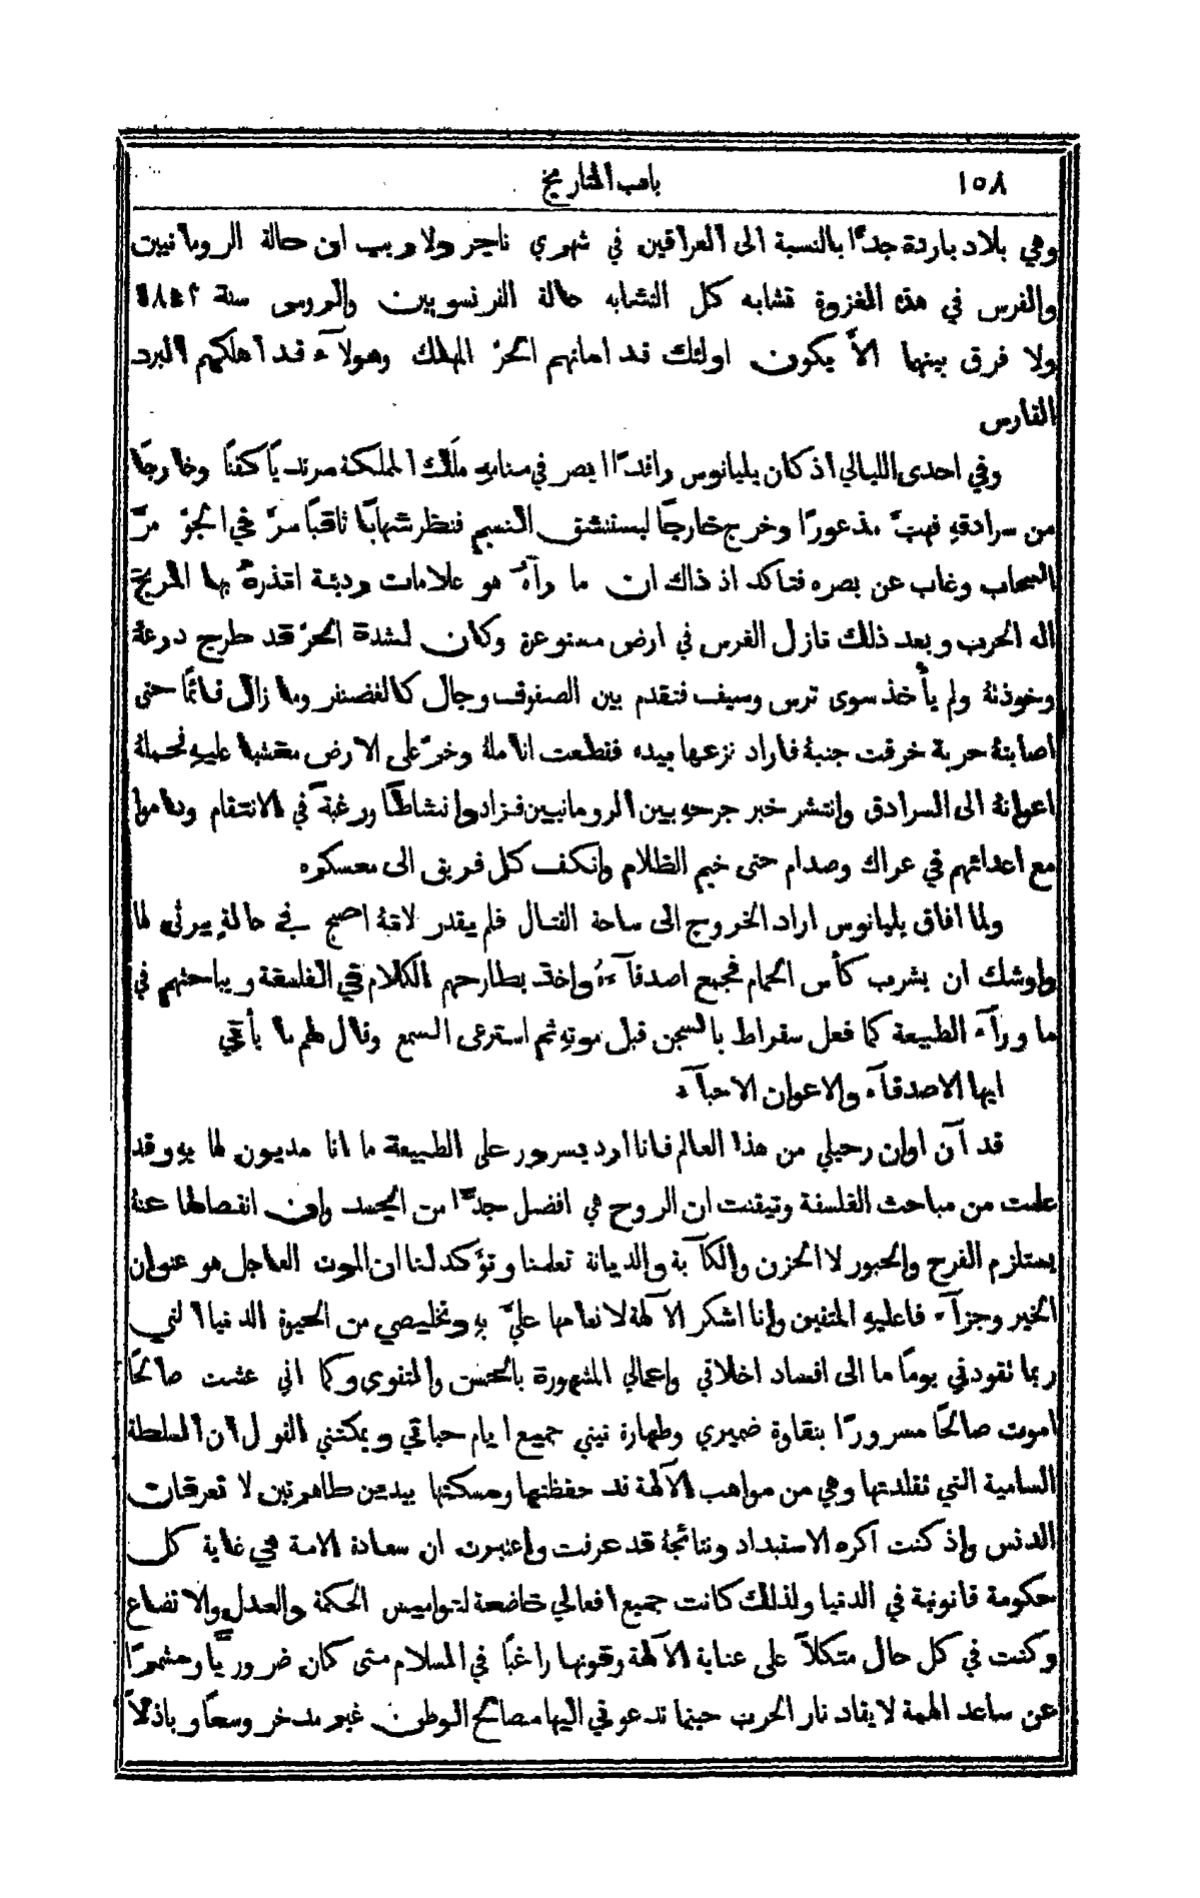 ١٥٨
باب التاريخ
وهي بلاد باردة جدًّا بالنسبة الى العراقين في شهري ناجر ولا ريب ان حالة الرومانيين
والفرس في هذه الغزوة تشابه كل التشابه حالة الفرنسويين والروس سنة
ولا فرق بينها الاَّ يكون اولئك قد اماتهم الحرّ المهلك وهولآء قد اهلكهم البرد
القارس
وفي احدى الليالي اذ كان يليانوس راقدًا ابصر في منامهِ مَلَك المملكة مرتديًا كفنًا وخارجًا
من سرادقهِ فهبَّ مذعورًا وخرج خارجًا ليستنشق النسيم فنظر شهابًا ثاقبًا سرَّ في الجوّ مرَّ
السحاب وغاب عن بصره فتاكد اذ ذاك ان ما رآهُ هو علامات رديئة انذرهُ بها المريخ
اله الحرب وبعد ذلك نازل الفرس في ارض مستوعرة وكان لشدة الحرّ قد طرح درعهُ
وخوذتهُ ولم يأخذ سوى ترس وسيف فتقدم بين الصفوف وجال كالغضنفر وما زال قائمًا حتى
اصابتهُ حربة خرقت جنبهُ فاراد نزعها بيده فقطعت اناملهُ وخرّ على الارض مغشيا عليهِ فحملهُ
اعوانهُ الى السرادق وانتشر خبر جرحهِ بين الرومانيين فزادوا نشاطًا ورغبةً في الانتقام وداموا
مع اعدائهم في عراك وصدام حتى خيم الظلام وانكف كل فريق الى معسكره
ولما افاق يليانوس اراد الخروج الى ساحة القتال فلم يقدر لانهُ اصبح في حالةٍ يرثى لها
واوشك ان يشرب كأس الحمام فجمع اصدقآءهُ واخذ يطارحهم الكلام في الفلسفة ويباحثهم في
ما ورآء الطبيعة كما فعل سقراط بالسجن قبل موتهِ ثم استرعى السمع وقال لهم ما يأتي
ايها الاصدقآء والاعوان الاحبآء
قد آن اوان رحيلي من هذا العالم فانا ارد بسرور على الطبيعة ما انا مديون لها بهِ وقد
علمت من مباحث الفلسفة وتيقنت ان الروح هي افضل جدًّا من الجسد وان انفصالها عنهُ
يستلزم الفرح والحبور لا الحزن والكآبة والديانة تعلمنا وتؤكد لنا ان الموت العاجل هو عنوان
الخير وجزآء فاعليهِ المتقين وانا اشكر الآلهة لانعامها عليَّ بهِ وتخليصي من الحيوة الدنيا التي
ربما تقودني يومًا ما الى افساد اخلاقي واعمالي المشهورة بالحسن والتقوى وكما اني عشت صالحًا
اموت صالحًا مسرورًا بنقاوة ضميري وطهارة نيتي جميع ايام حياتي ويمكنني القول ان السلطة
السامية التي تقلدتها وهي من مواهب الآلهة قد حفظتها ومسكتها بيدين طاهرتين لا تعرفان
الدنس واذ كنت اكره الاستبداد ونتائجهُ قد عرفت واعتبرت ان سعادة الامة هي غاية كل
حكومة قانونية في الدنيا ولذلك كانت جميع افعالي خاضعة لنواميس الحكمة والعدل والاتضاع
وكنت في كل حال متكلاً على عناية الآلهة وقوتها راغبًا في السلام متى كان ضروريًّا ومشمرًا
عن ساعد الهمة لايقاد نار الحرب حينما تدعوني اليها مصالح الوطن غير مدخر وسعًا وباذلاً